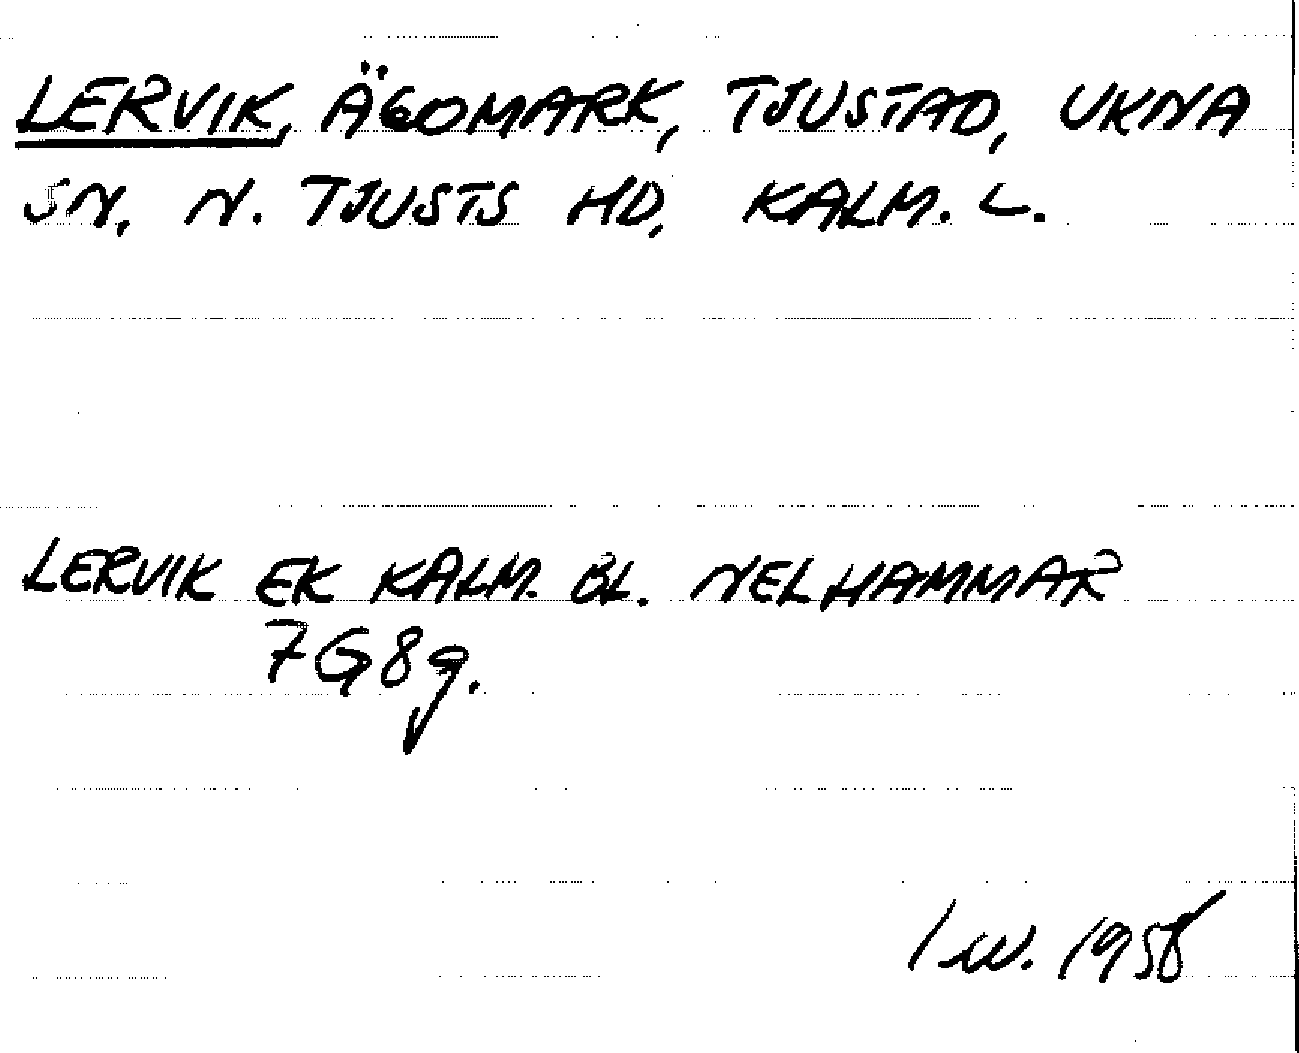 LERVIK, ÄGOMARK, TJUSTAD, UKNA
SN, N. TJUSTS HD, KALM. L.
LERVIK EK KALM. BL. NELHAMMAR
7G8g.
I W. 1958